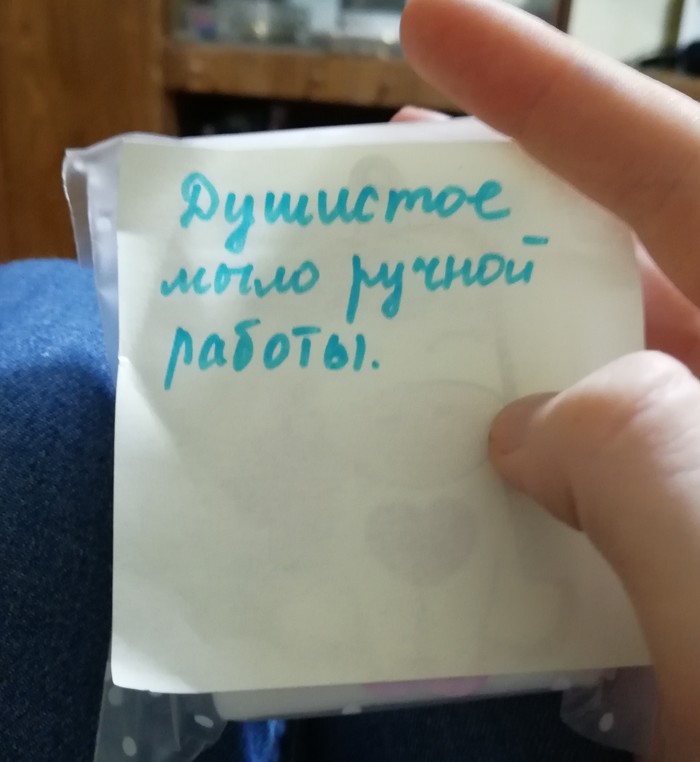 Душистое
мыло ручной
работы.